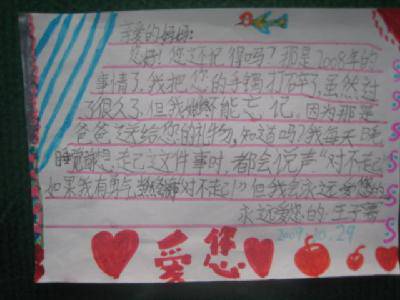 亲爱的妈妈:
您好!您还记得吗?那是2008年的
事情了,我把您的手镯打碎了,虽然过
了很久了,但我还不能忘记,因为那是
爸爸送给您的礼物,知道吗?我每天睡
睡觉想起己这件事时,都会说声"对不起"
如果我有勇气 "对不起!"但我会永远爱您的
永远爱您的:王子
2009.10.29
爱您